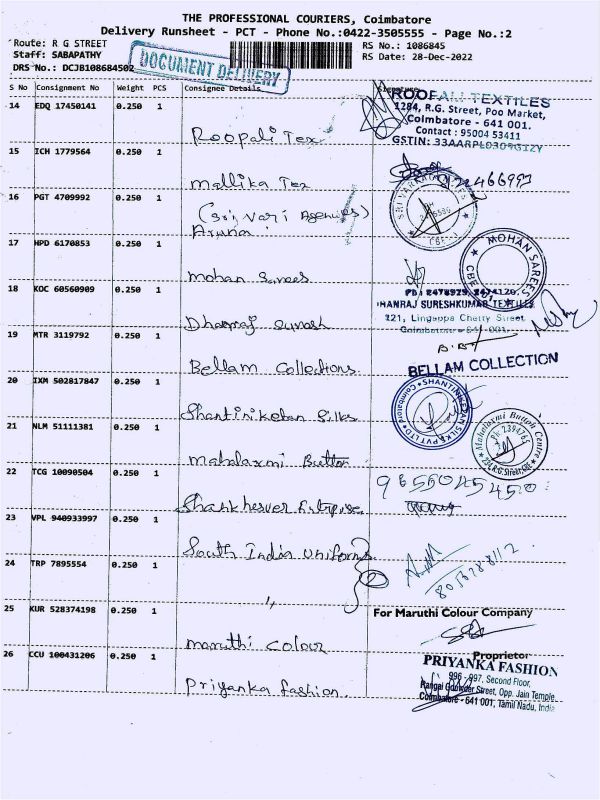 THE PROFESSIONAL COURIERS, Coimbatore
Delivery Runsheet - PCT - Phone No.:0422-3505555 - Page No.:2
Route: R G STREET
RS No.: 1086845
Staff: SABAPATHY
RS Date: 28-Dec-2022
DRS No.: DCJB108684502
DOCUMENT DELIVERY
S No Consignment No Weight PCS Consignee Details
14 EDQ 17450141 0.250 1
Roopali Tex
ROOPALI TEXTILES
1284, R.G. Street, Poo Market,
Coimbatore - 641 001.
Contact : 95004 53411
GSTIN: 33AARPL0309G1ZY
15 ICH 1779564 0.250 1
Mallika Tex
16 PGT 4709992 0.250 1
(Sri Vari Agencies)
Aruna
17 HPD 6170853 0.250 1
Mohan Sarees
MOHAN SAREES
CBE
18 KOC 60560909 0.250 1
Dhanraj Suresh
DHANRAJ SURESHKUMAR TEXTILES
221, Lingappa Chetty Street
Coimbatore - 641 001.
19 MTR 3119792 0.250 1
Bellam Collections
BELLAM COLLECTION
20 IXM 502817847 0.250 1
Shantiniketan Silks
SHANTINIKETAN SILKS PVT LTD
Coimbatore
21 NLM 51111381 0.250 1
Mahalaxmi Button
Mahalaxmi Button Centre
Ph: 2394765
R.G. Street, CBE
22 TCG 10090504 0.250 1
Shankhesver Entrprise
9655045450
23 VPL 940933997 0.250 1
South India Uniforms
24 TRP 7895554 0.250 1
,,
25 KUR 528374198 0.250 1
Maruthi Colour
For Maruthi Colour Company
Proprietor
26 CCU 100431206 0.250 1
Priyanka Fashion.
PRIYANKA FASHION
996 - 997, Second Floor,
Rangai Gounder Street, Opp. Jain Temple,
Coimbatore - 641 001, Tamil Nadu, India